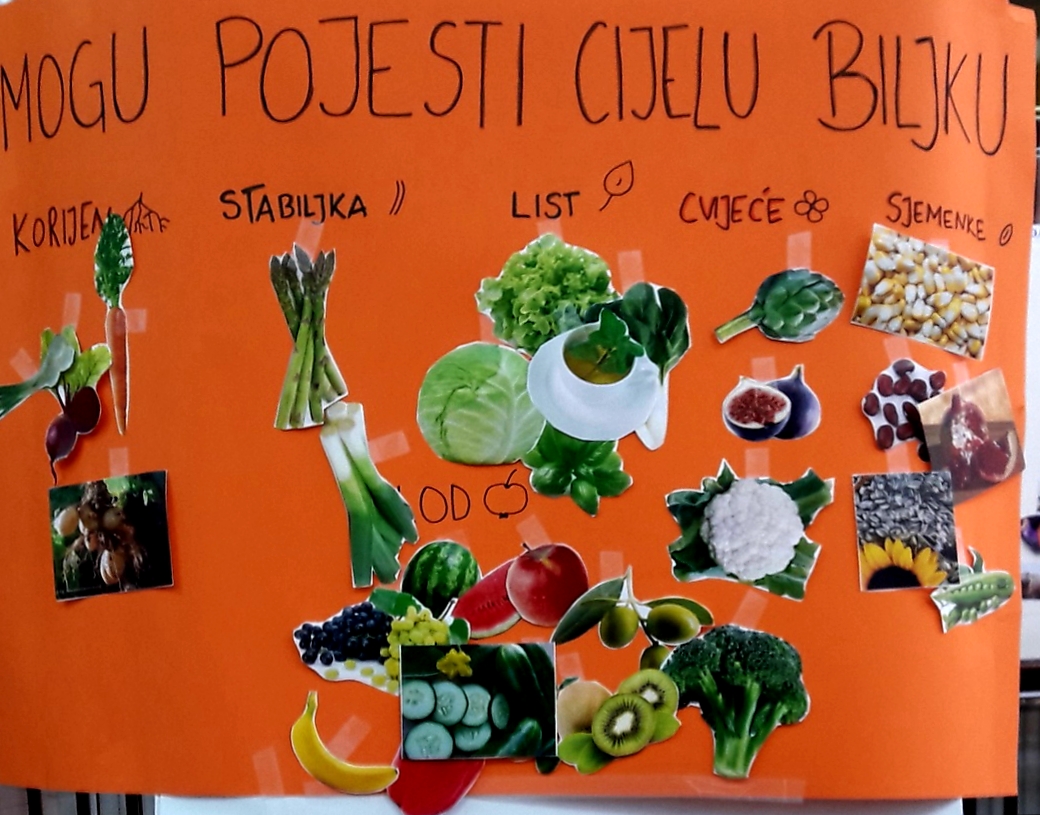 MOGU POJESTI CIJELU BILJKU
KORIJEN
STABILJKA
LIST
CVIJEĆE
SJEMENKE
OD